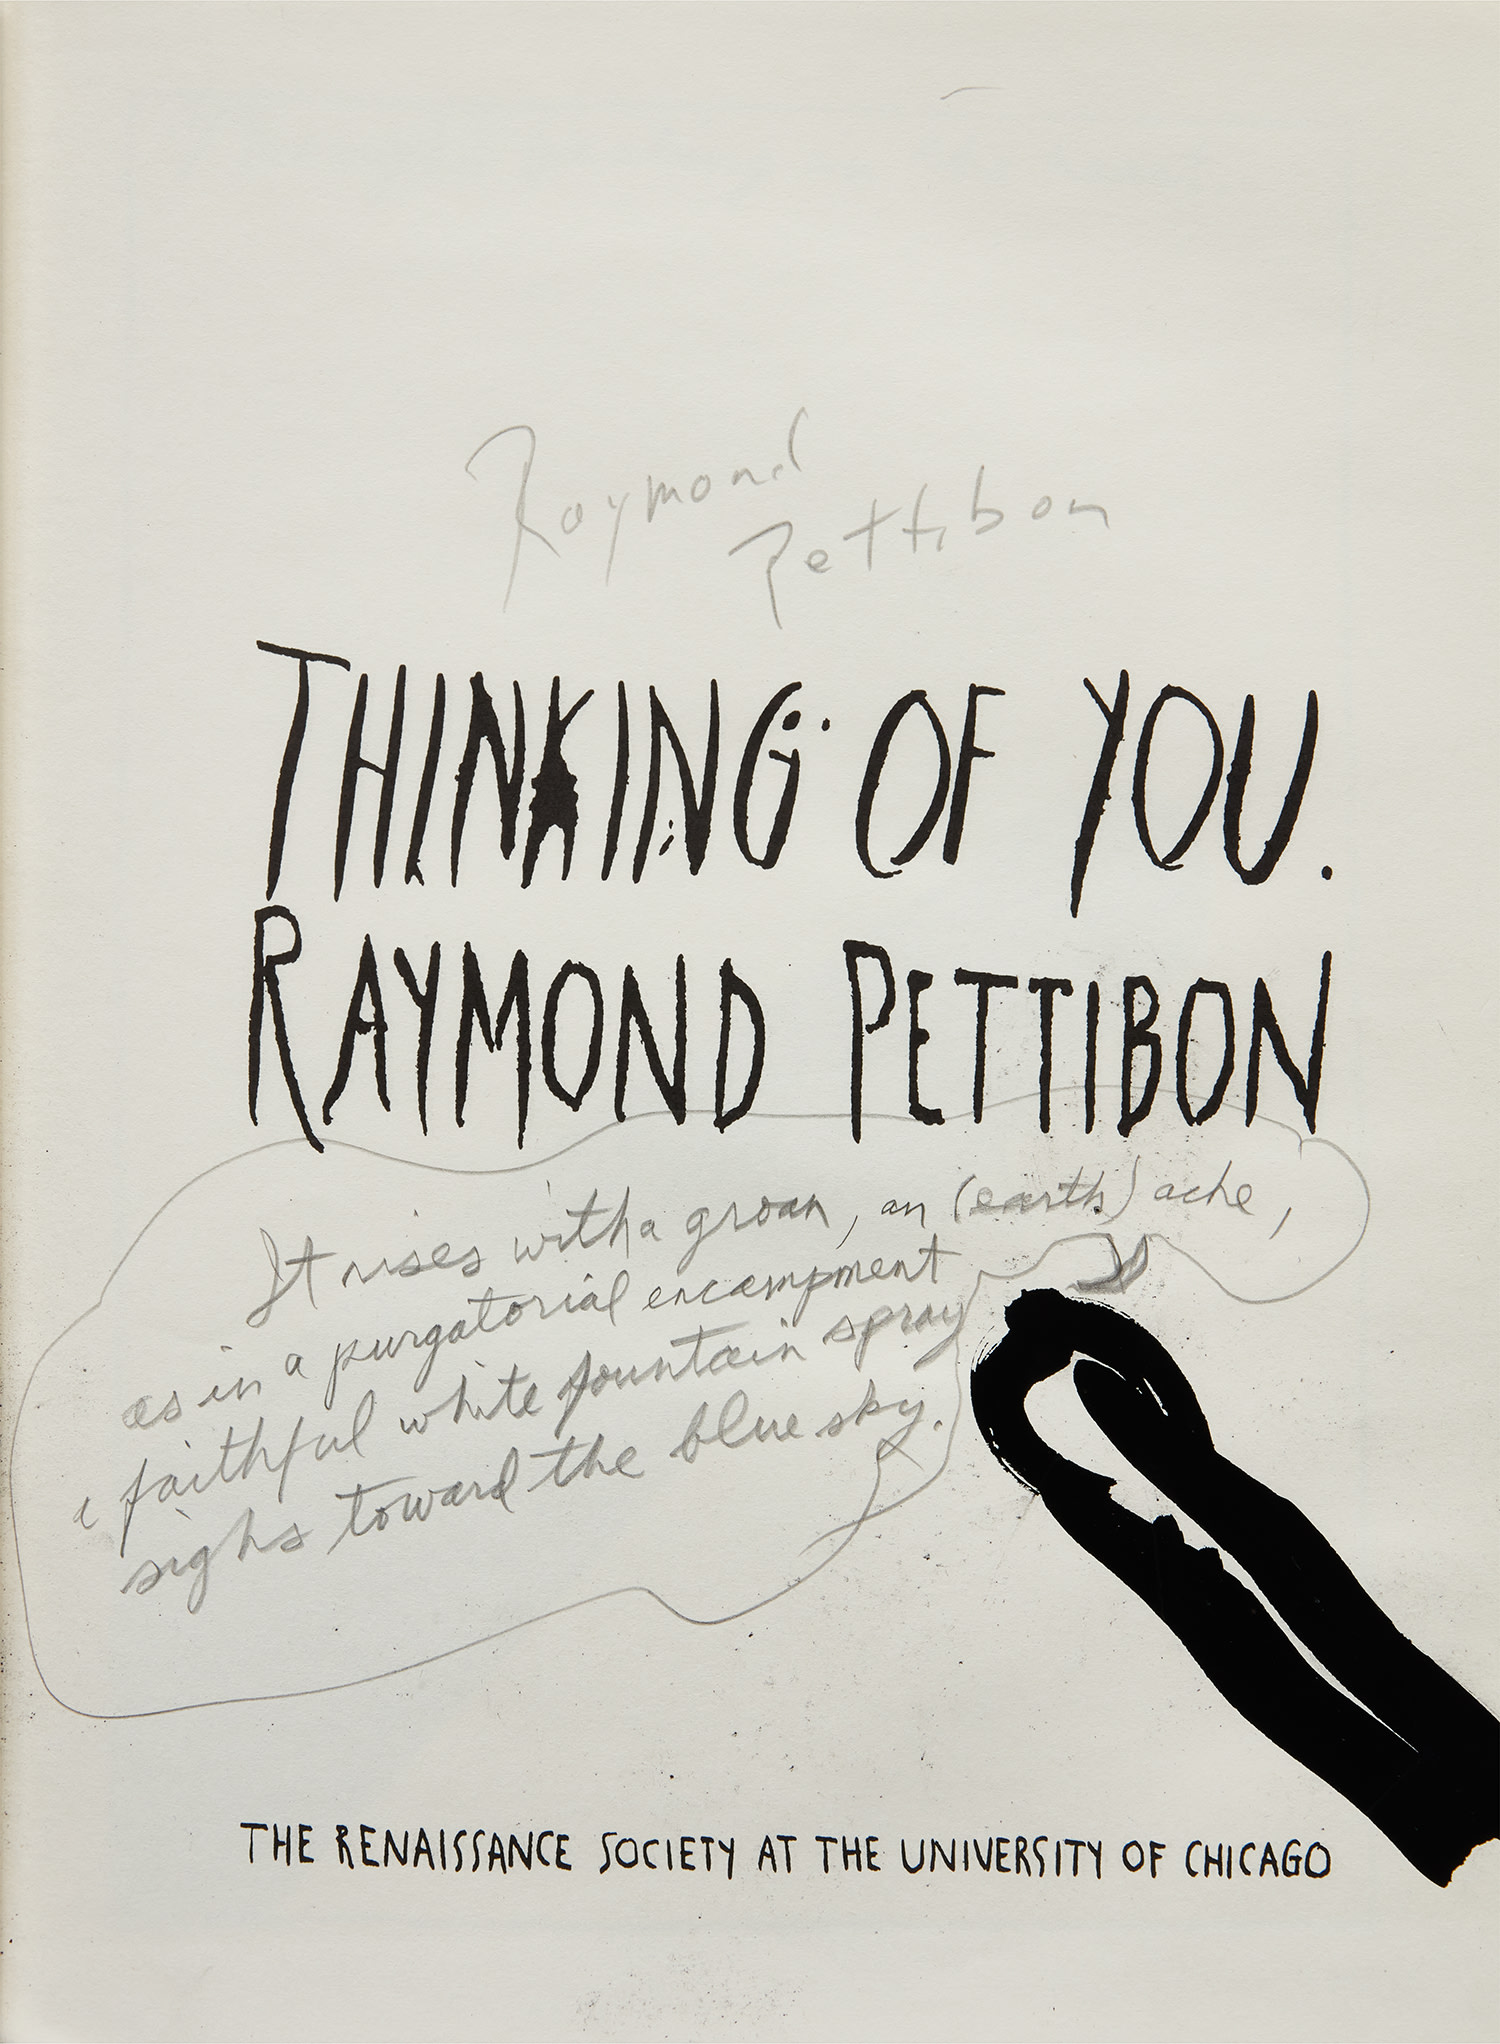 Raymond
Pettibon
THINKING OF YOU.
RAYMOND PETTIBON
It rises with a groan, an (earth) ache,
as in a purgatorial encampment
a faithful white fountain spray
sighs toward the blue sky.
THE RENAISSANCE SOCIETY AT THE UNIVERSITY OF CHICAGO